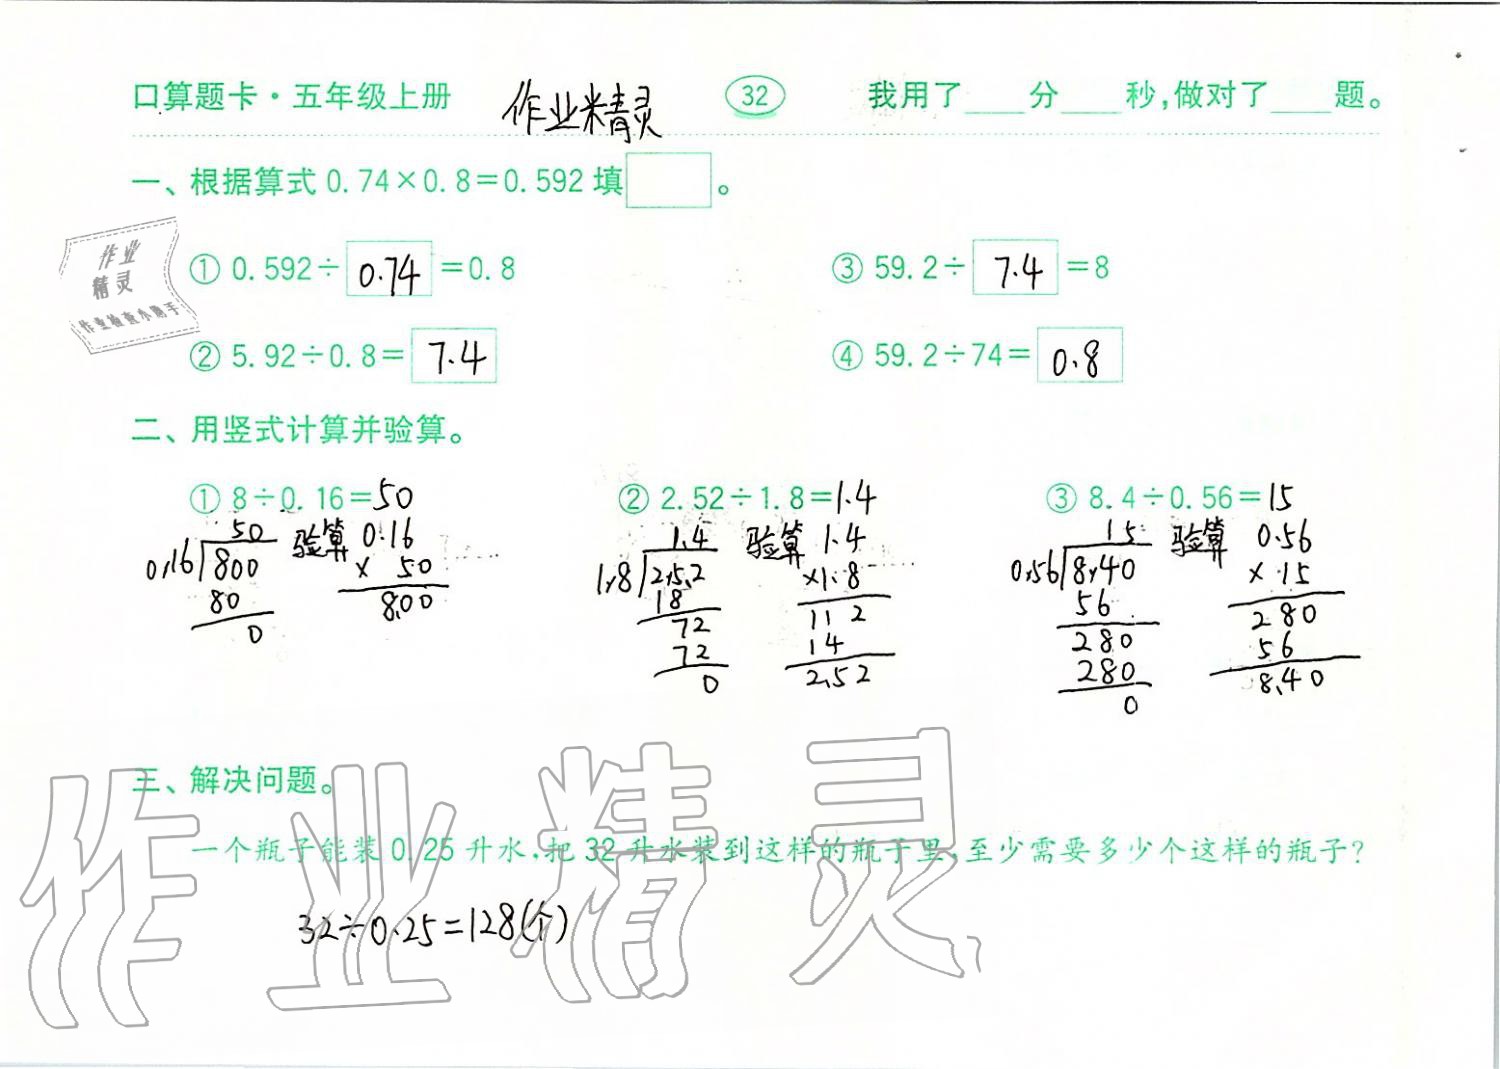 口算题卡·五年级上册 作业精灵 32 我用了____分____秒,做对了____题。
一、根据算式 0.74×0.8=0.592 填□。
作业
精灵
作业检查小助手
① 0.592÷0.74=0.8 ③ 59.2÷7.4=8
② 5.92÷0.8=7.4 ④ 59.2÷74=0.8
二、用竖式计算并验算。
① 8÷0.16=50 ② 2.52÷1.8=1.4 ③ 8.4÷0.56=15
50 验算 0.16 1.4 验算 1.4 15 验算 0.56
0.16 800 × 50 1.8 2.5.2 ×1.8 0.56 8.40 ×15
80 8.00 18 112 56 280
0 72 14 280 56
72 2.52 280 8.40
0 0
三、解决问题。
一个瓶子能装 0.25 升水,把 32 升水装到这样的瓶子里,至少需要多少个这样的瓶子?
32÷0.25=128(个)
作业精灵